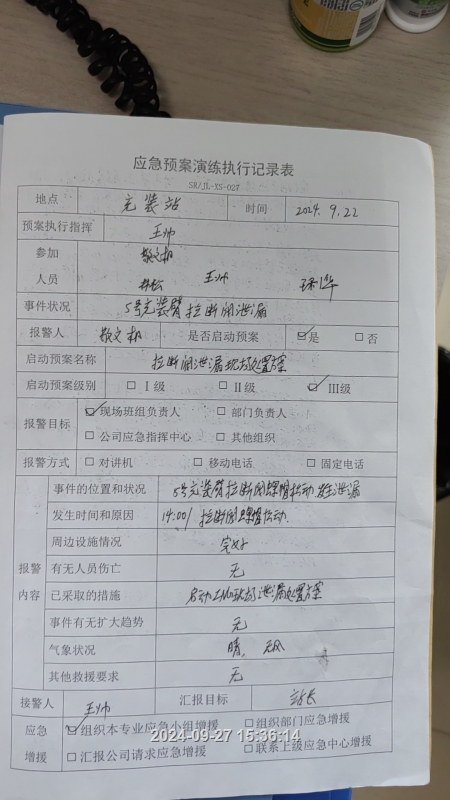 应急预案演练执行记录表
SR/JL-XS-027
地点 充装站 时间 2024.9.22
预案执行指挥 王帅
参加 敬文机
人员 王帅
事件状况 5号充装臂拉断阀泄漏
报警人 敬文机 是否启动预案 ☑是 □否
启动预案名称 拉断阀泄漏现场处置方案
启动预案级别 □Ⅰ级 □Ⅱ级 ☑Ⅲ级
报警目标 ☑现场班组负责人 □部门负责人
□公司应急指挥中心 □其他组织
报警方式 □对讲机 □移动电话 □固定电话
报警内容
事件的位置和状况 5号充装臂拉断阀螺帽松动发生泄漏
发生时间和原因 14:00/拉断阀螺帽松动.
周边设施情况 完好
有无人员伤亡 无
已采取的措施 启动现场泄漏处置方案
事件有无扩大趋势 无
气象状况 晴,无风
其他救援要求 无
接警人 王帅 汇报目标 站长
应急 ☑组织本专业应急小组增援 □组织部门应急增援
增援 □汇报公司请求应急增援 □联系上级应急中心增援
2024-09-27 15:36:14